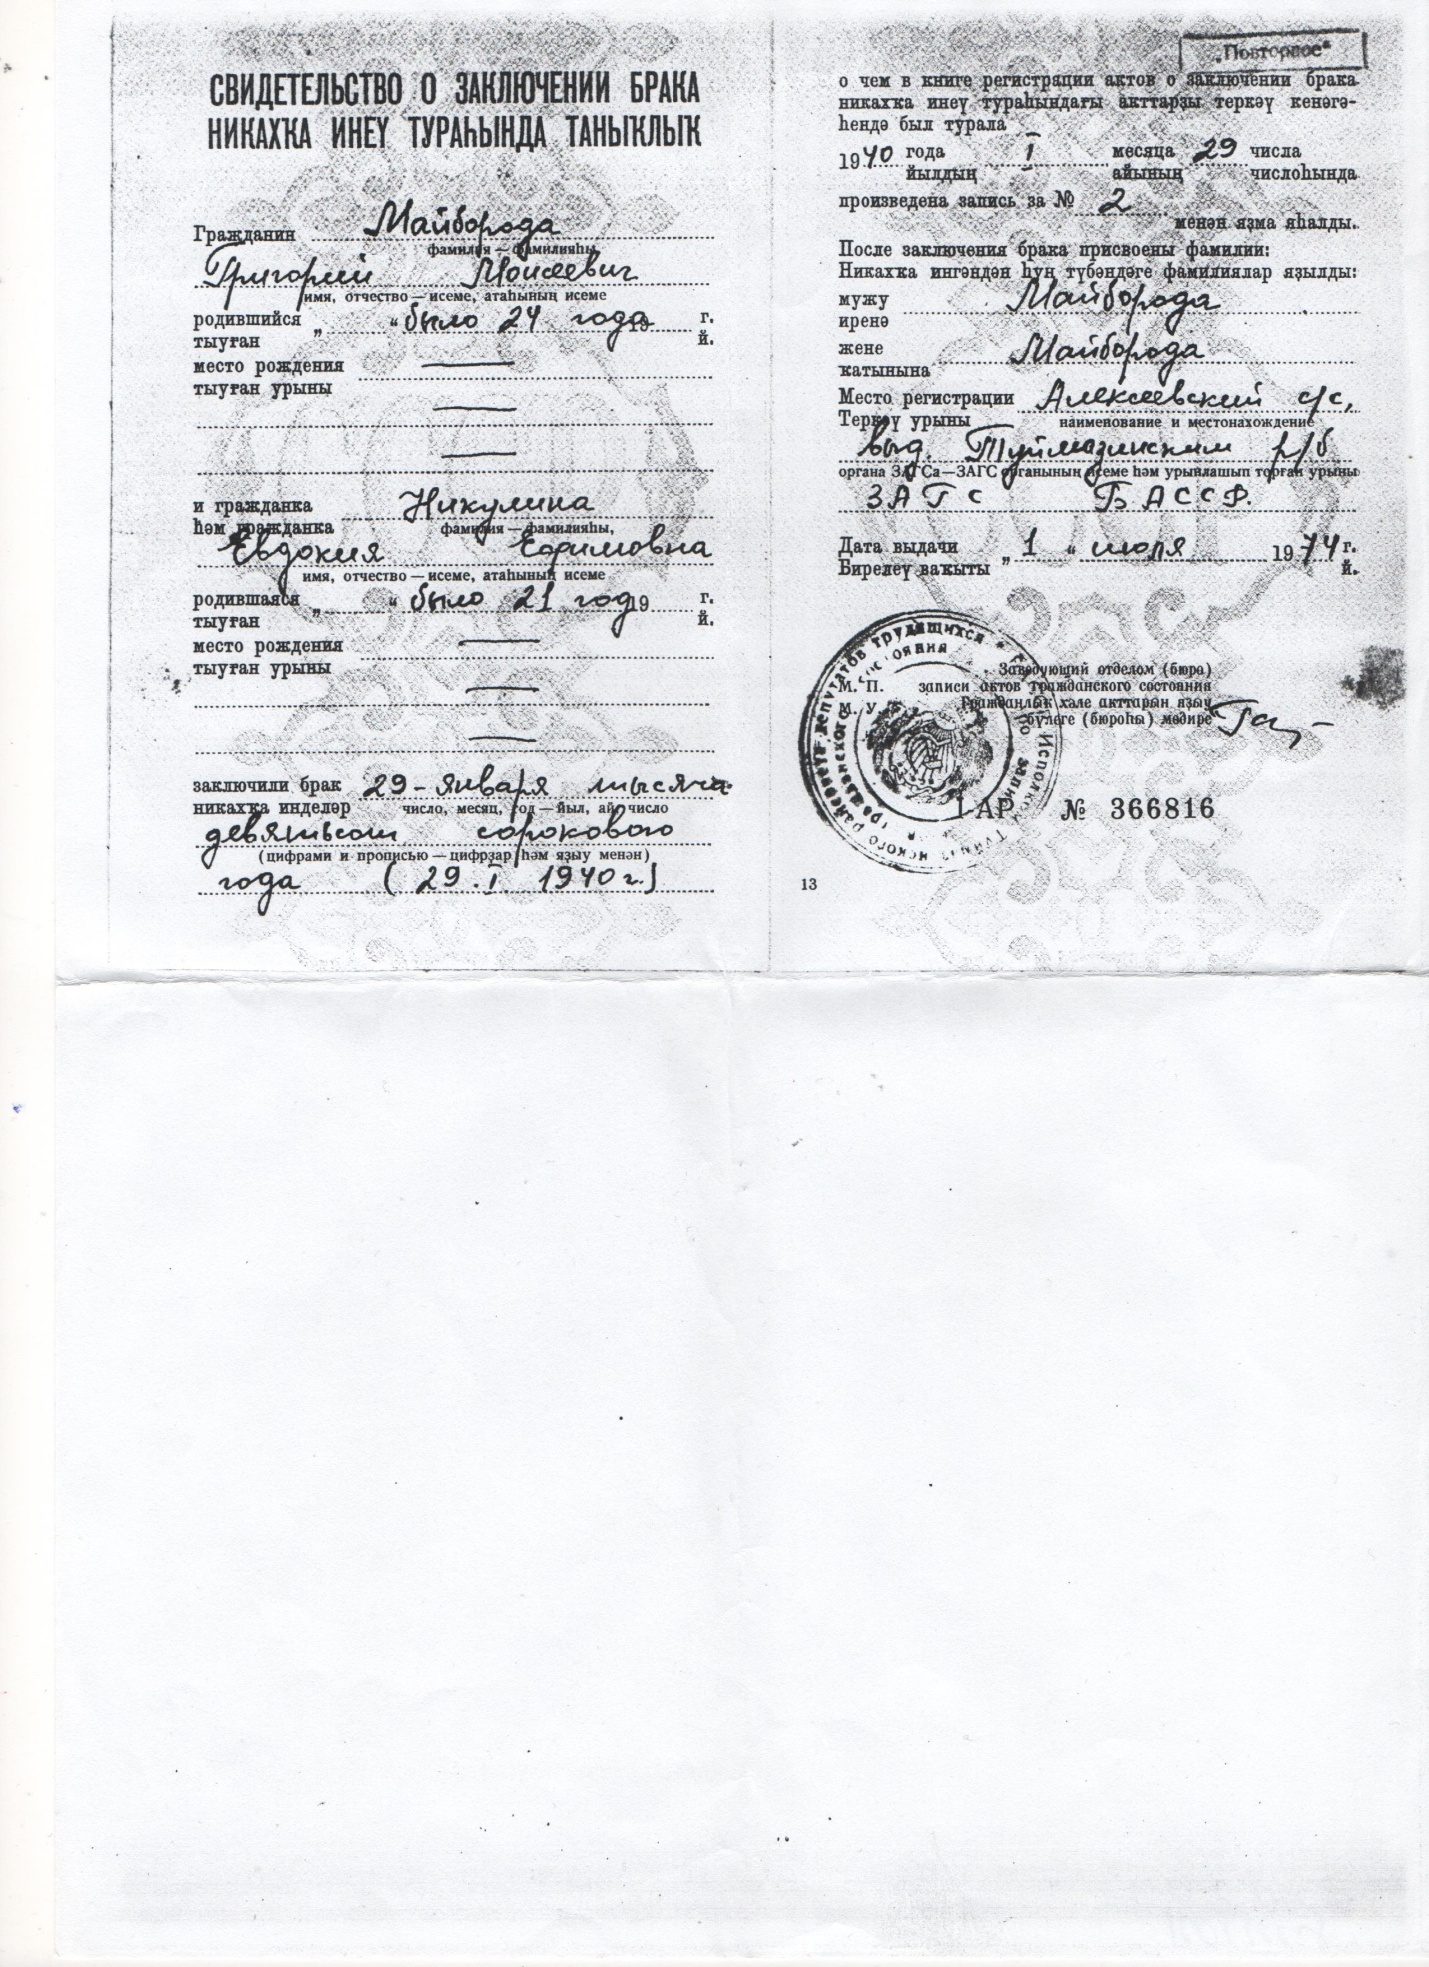 СВИДЕТЕЛЬСТВО О ЗАКЛЮЧЕНИИ БРАКА
НИКАХҠА ИНЕҮ ТУРАҺЫНДА ТАНЫҠЛЫҠ
Гражданин Майборода
фамилия — фамилияһы,
Григорий Моисеевич
имя, отчество — исеме, атаһының исеме
родившийся „ “ было 24 года 19 г.
тыуған й.
место рождения —
тыуған урыны
—
—
и гражданка Никулина
һәм гражданка фамилия — фамилияһы,
Евдокия Ефимовна
имя, отчество — исеме, атаһының исеме
родившаяся „ “ было 21 год 19 г.
тыуған й.
место рождения —
тыуған урыны
—
—
заключили брак 29 - января тысяча
никахҡа инделәр число, месяц, год — йыл, ай, число
девятьсот сорокового
(цифрами и прописью — цифрҙар һәм яҙыу менән)
года (29. I. 1940 г.)
„Повторное“
о чем в книге регистрации актов о заключении брака
никахҡа инеү тураһындағы акттарҙы теркәү кенәгә-
һендә был турала
1940 года I месяца 29 числа
йылдың айының числоһында
произведена запись за № 2
менән яҙма яһалды.
После заключения брака присвоены фамилии:
Никахҡа ингәндән һуң түбәндәге фамилиялар яҙылды:
мужу Майборода
иренә
жене Майборода
ҡатынына
Место регистрации Алексеевский с/с,
Теркәү урыны наименование и местонахождение
выд. Туймазинским р/б
органа ЗАГСа—ЗАГС органының исеме һәм урынлашып торған урыны
ЗАГС БАССР.
Дата выдачи „ 1 “ июля 1974 г.
Бирелеү ваҡыты й.
Заведующий отделом (бюро)
М. П. записи актов гражданского состояния
М. У. Граждандлыҡ хәле акттарын яҙыу
бүлеге (бюроһы) мөдире
I-АР № 366816
13